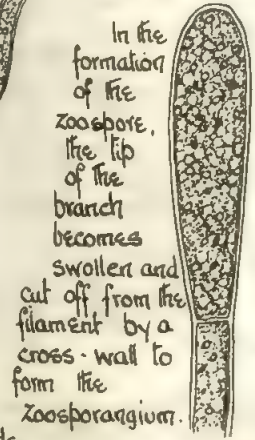 In the
formation
of the
zoospore,
the tip
of the
branch
becomes
swollen and
cut off from the
filament by a
cross-wall to
form the
zoosporangium.